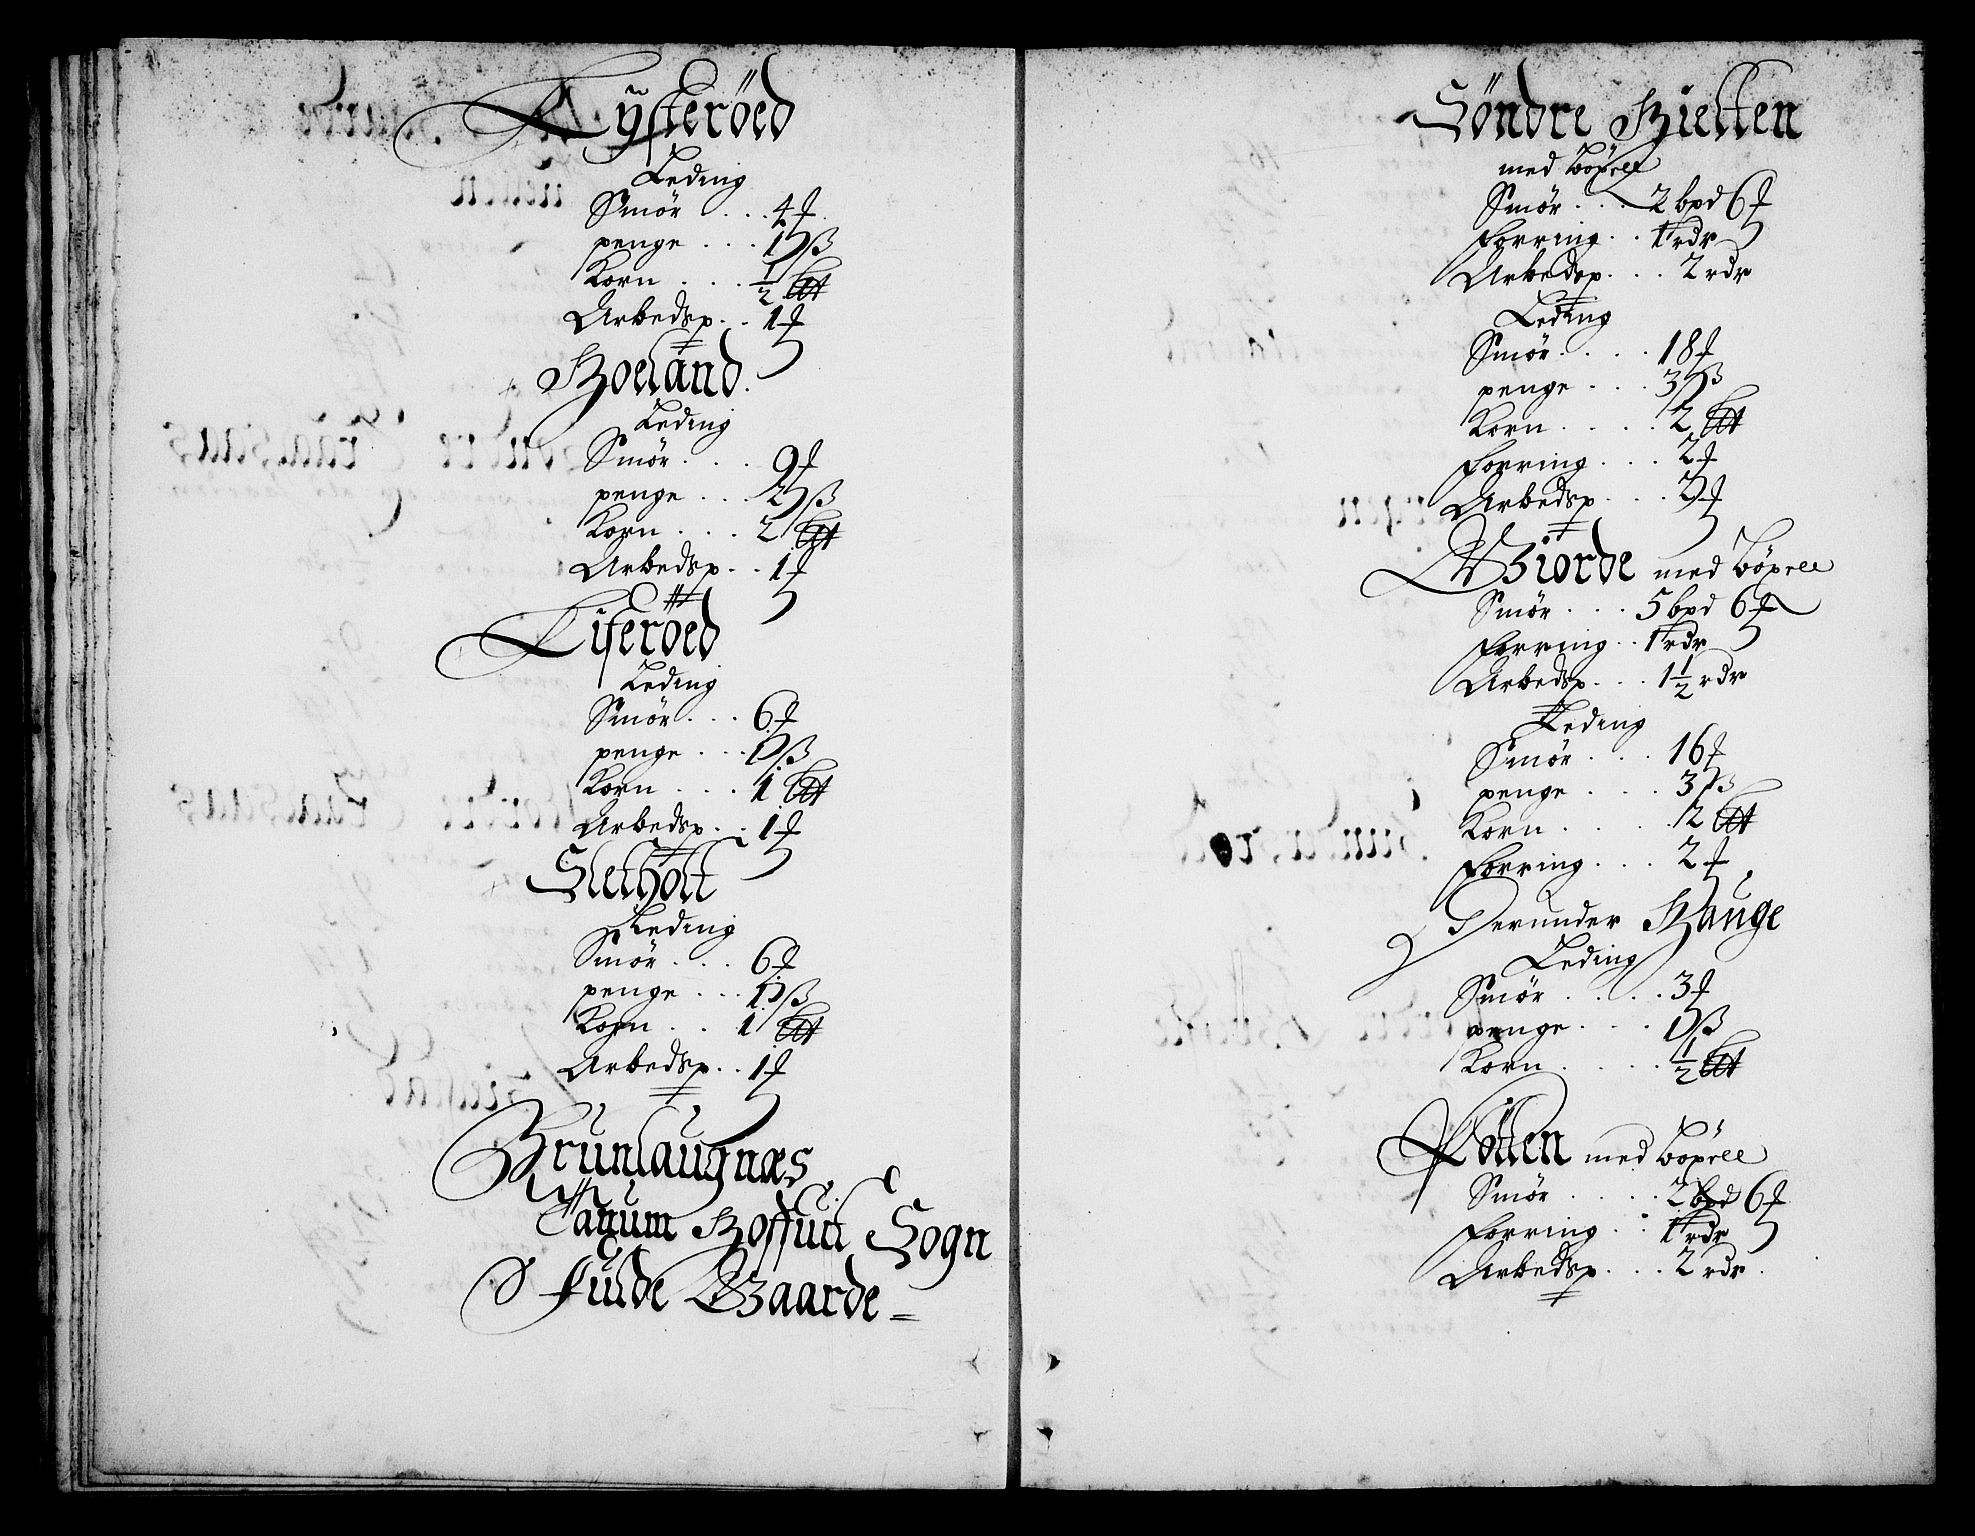 Lÿsteröed
Leding
Smör . . . 4 ℔
penge . . . 1 ß
Korn . . . ½ Sett
Arbedsp. . 1 ℔
Hoeland.
Leding
Smör . . . 9 ℔
penge . . . 2 ß
Korn . . . 2 Sett
Arbedsp. . 1 ℔
Eiferöed
Leding
Smör . . . 6 ℔
penge . . . 1 ß
Korn . . . 1 Sett
Arbedsp. . 1 ℔
Sletholt
Leding
Smör . . . 6 ℔
penge . . . 1 ß
Korn . . 1 Sett
Arbedsp. . 1 ℔
Brunlaugnæs
Tanum Hoffuit Sogn
Fulde Gaarde =
Söndre Hietten
med Böxell
Smör . . . 2 bpd 6 ℔
Forring . . 1 rdr
Arbedsp. . . 2 rdr
Leding
Smör . . . . 18 ℔
penge . . . 3 ß
Korn . . . . 2 Sett
Forring . . . 2 ℔
Arbedsp . . . 2 ℔
Giorde med Böxell
Smör . . . 5 bpd 6 ℔
Forring . . 1 rdr
Arbedsp. . . 1½ rdr
Leding
Smör . . . 16 ℔
penge . . . . 3 ß
Korn . . . . 2 Sett
Forring . . . 2 ℔
Derunder Hauge
Leding
Smör . . . . 3 ℔
penge . . . 1 ß
Korn . . . . ½ Sett
med Böxell
Smör . . . . 2 bpd 6 ℔
Forring . . 1 rdr
Arbedsp. . . 2 rdr.